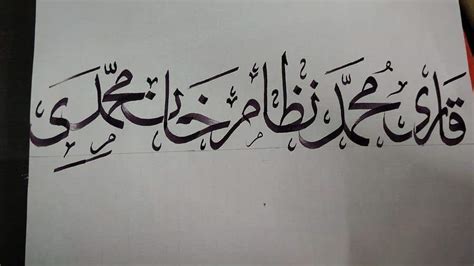 قاری مُحمَّد نظام خان محمّدی